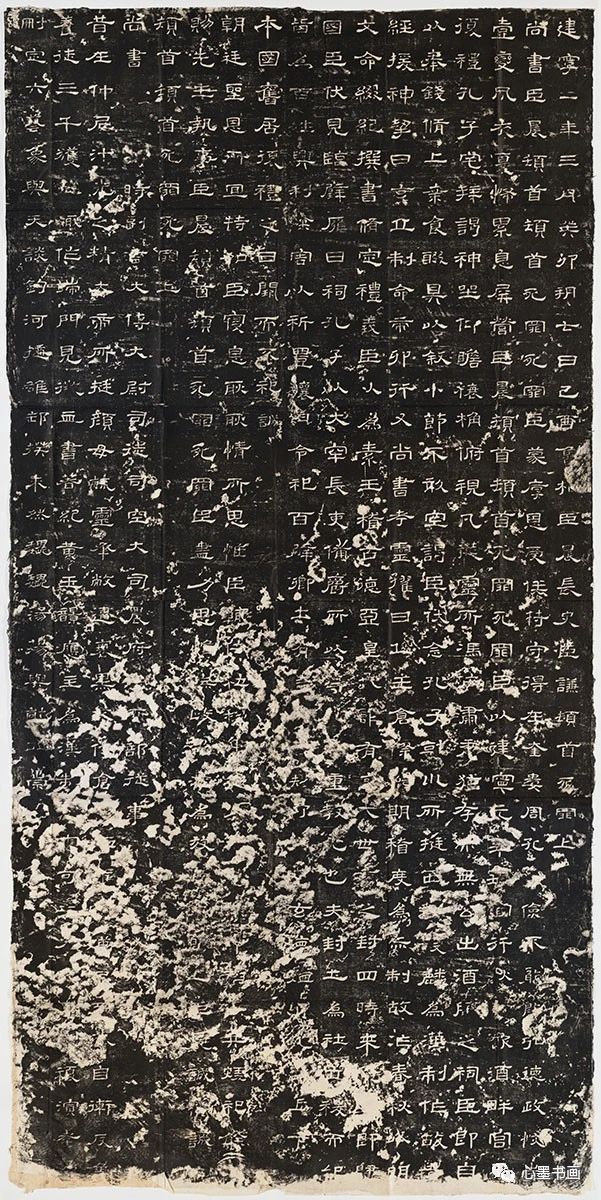 建寧二年三月癸卯朔七日己酉魯相臣晨長史臣謙頓首死罪上
尚書臣晨頓首頓首死罪死罪臣蒙厚恩受任符守得在奎婁周孔舊寓不能闡弘德政恢崇
壹變夙夜憂怖累息屏營臣晨頓首頓首死罪死罪臣以建寧元年到官行秋饗飲酒畔宮
復禮孔子宅拜謁神坐仰瞻榱桷俯視几筵靈所馮依肅肅猶存而無公出酒脯之祠臣即自
以奉錢脩上案食醊具以敘小節不敢空謁臣伏念孔子乾坤所挺西狩獲麟為漢制作故孝
經援神挈曰玄丘制命帝卯行又尚書考靈燿曰丘生倉際觸期稽度為赤制故作春秋以明
文命綴紀撰書脩定禮義臣以為素王稽古德亞皇代雖有褒成世享之封四時來祭畢即歸
國臣伏見臨辟雍日祠孔子以大宰長吏備爵所以尊先師重教化也夫封土為社立稷而祀
皆為百姓興利除害以祈豐穰月令祀百辟卿士有矧乃玄德
本國舊居復禮之日闕而不祀誠
朝廷聖恩所宜特加臣寑息耿耿情所思惟臣輒依社稷以共煙祀
賜先生執事臣晨頓首頓首死罪死罪臣盡力思惟庶政為效誠
頓首頓首死罪死罪上
尚書
時副言大傅大尉司徒司空大司農府治所部從事
昔在仲尼汁光之精大帝所挺顏母毓靈承敝遭衰黑不代倉自衛反魯
養徒三千獲麟趣作端門見徵血書著紀黃玉響應主為漢制可復演孝
刪定六藝象與天談鉤河擿雒卻揆未然巍巍蕩蕩與乾比崇
心墨书画